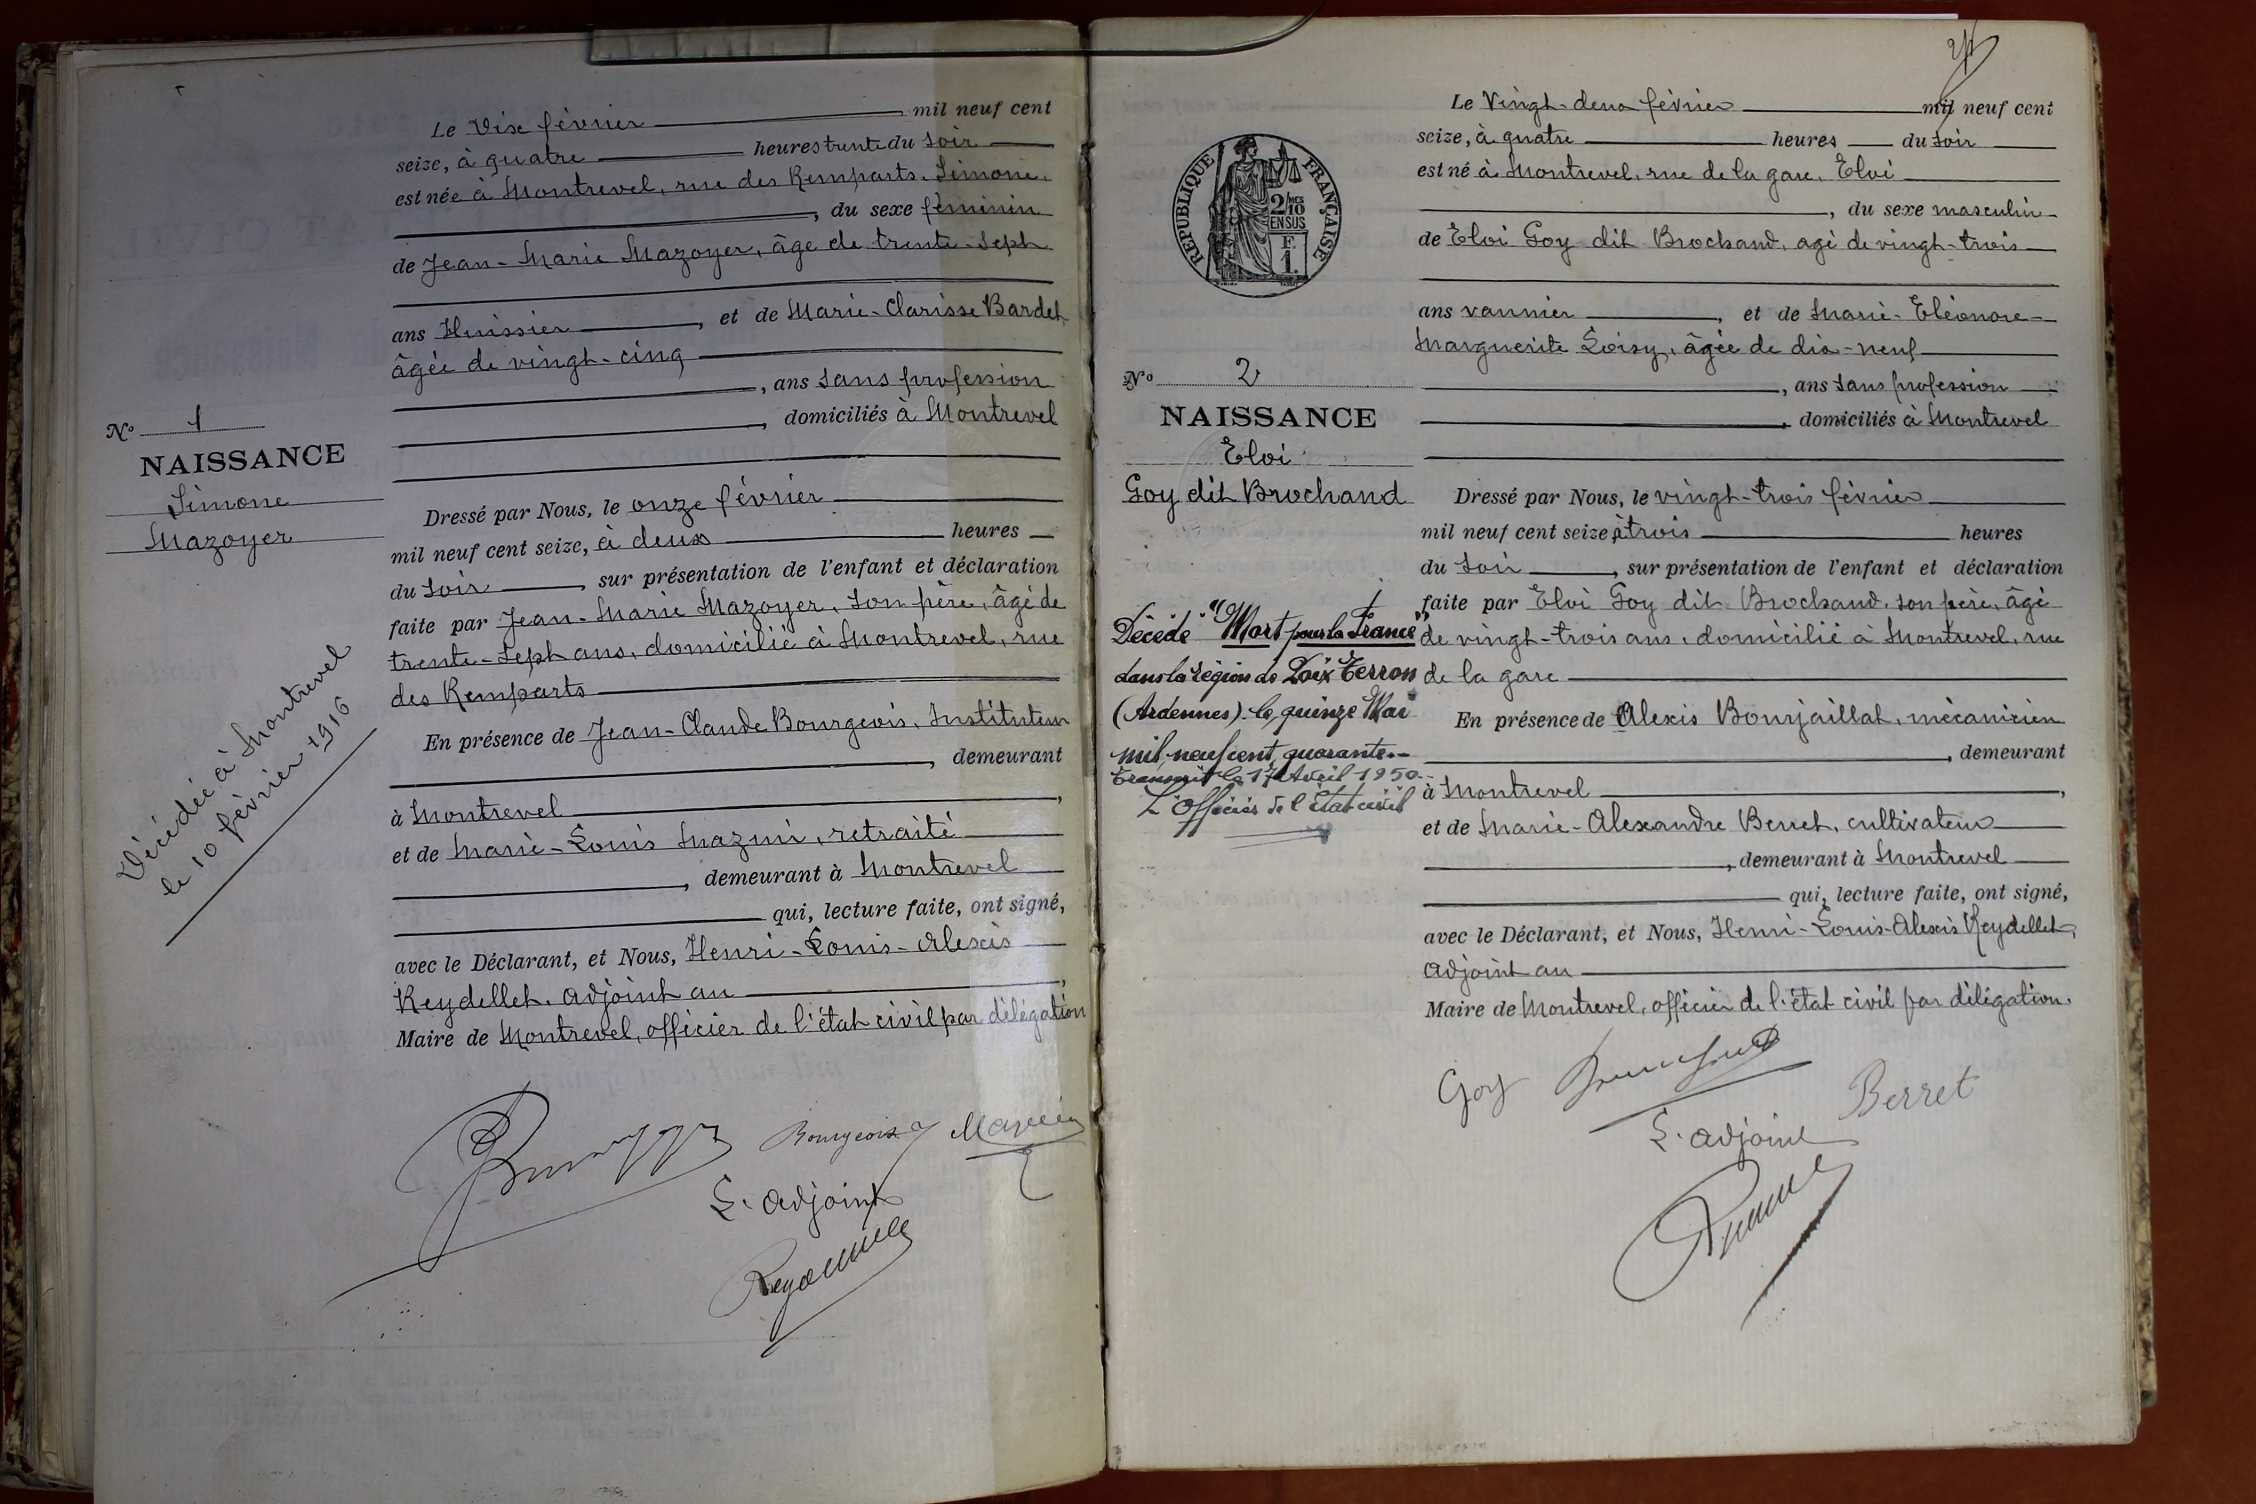 Le Dix février mil neuf cent
seize, à quatre heures trente du soir
est née à Montrevel, rue des Remparts. Simone.
, du sexe féminin
de Jean-Marie Mazoyer, âge de trente-sept
ans Huissier, et de Marie-Clarisse Bardet
âgée de vingt-cinq
, ans sans profession
, domiciliés à Montrevel
No 1
NAISSANCE
Simone
Mazoyer
Dressé par Nous, le onze février
mil neuf cent seize, à deux heures
du soir, sur présentation de l'enfant et déclaration
faite par Jean-Marie Mazoyer, son père, âgé de
trente-sept ans, domicilié à Montrevel, rue
des Remparts
Décédée à Montrevel
le 10 février 1916
En présence de Jean-Claude Bourgeois, Instituteur
, demeurant
à Montrevel,
et de Marie-Louis Mazuir, retraité
, demeurant à Montrevel
qui, lecture faite, ont signé,
avec le Déclarant, et Nous, Henri-Louis-Alexis
Reydellet, adjoint au,
Maire de Montrevel, officier de l'état civil par délégation
Bourgeois
L'adjoint
Le Vingt-deux février mil neuf cent
seize, à quatre heures du soir
est né à Montrevel, rue de la gare, Eloi
, du sexe masculin
de Eloi Goy dit Brochand, agé de vingt-trois
REPUBLIQUE FRANÇAISE
2/10MES
EN SUS
F.
1.
ans vannier, et de Marie-Eléonore-
Marguerite Loisy, âgée de dix-neuf
, ans sans profession
, domiciliés à Montrevel
No 2
NAISSANCE
Eloi
Goy dit Brochand
Dressé par Nous, le vingt-trois février
mil neuf cent seize à trois heures
du soir, sur présentation de l'enfant et déclaration
faite par Eloi Goy dit Brochand, son père, âgé
de vingt-trois ans, domicilié à Montrevel, rue
de la gare
Décédé "Mort pour la France"
dans la région de Loix Terron
(Ardennes) le quinze Mai
mil neuf cent quarante.-
transcrit le 17 Avril 1950.-
L'Officier de l'état civil
En présence de Alexis Bourjaillat, mécanicien
, demeurant
à Montrevel,
et de Marie-Alexandre Berret, cultivateur
, demeurant à Montrevel
qui, lecture faite, ont signé,
avec le Déclarant, et Nous, Henri-Louis-Alexis Reydellet,
adjoint au
Maire de Montrevel, officier de l'état civil par délégation.
Goy
Berret
L'adjoint